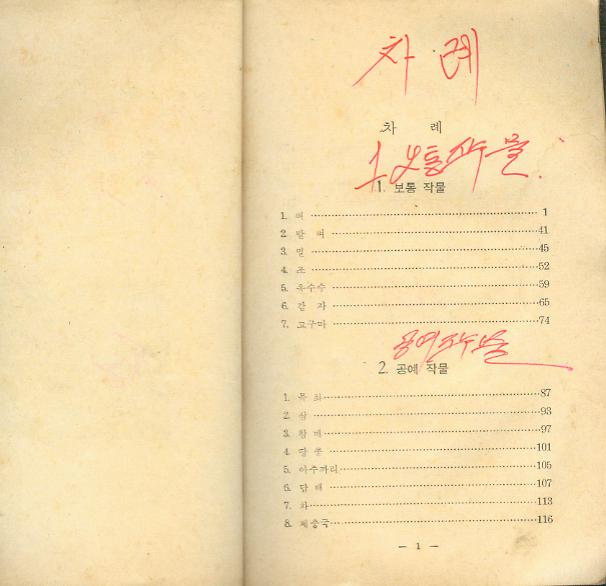 차 례
차 례
1. 보통작물
1. 보통 작물
1. 벼 1
2. 밭 벼 41
3. 밀 45
4. 조 52
5. 옥수수 59
6. 감 자 65
7. 고구마 74
공예작물
2. 공예 작물
1. 목 화 87
2. 삼 93
3. 참 깨 97
4. 땅 콩 101
5. 아주까리 105
6. 담 배 107
7. 차 113
8. 제충국 116
— 1 —